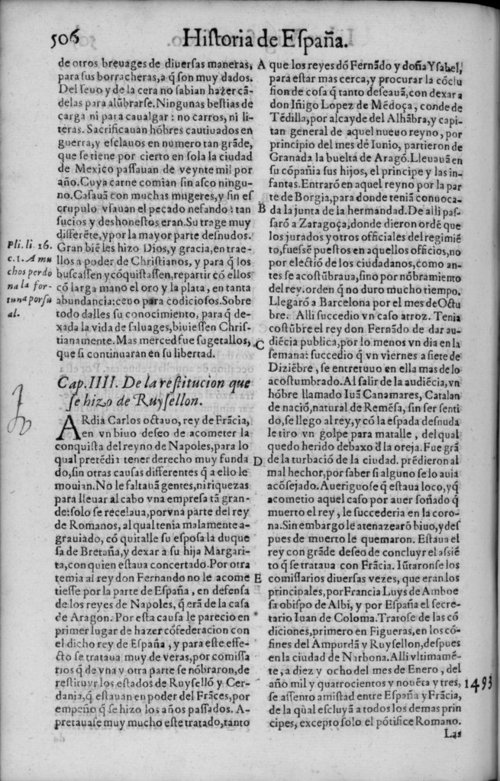 506
Historia de España.
de otros breuages de diuersas maneras,
para sus borracheras, a q̃ son muy dados.
Del seuo y de la cera no sabian hazer cã-
delas para alũbrarse. Ningunas bestias de
carga ni para caualgar: no carros, ni li-
teras. Sacrificauan hõbres cautiuados en
guerra, y esclauos en numero tan grãde,
que se tiene por cierto en sola la ciudad
de Mexico passauan de veynte mil por
año. Cuya carne comian sin asco ningu-
no. Casauã con muchas mugeres, y sin es
crupulo vsauan el pecado nefando: tan
suzios y deshonestos eran. Su trage muy
differẽte, y por la mayor parte desnudos.
Gran biẽ les hizo Dios, y gracia, en trae-
llos a poder de Christianos, y para q̃ los
buscassen y cõquistassen, repartir cõ ellos
cõ larga mano el oro y la plata, en tanta
abundancia: ceuo para codiciosos. Sobre
todo dalles su conocimiento, para q̃ de-
xada la vida de saluages, biuiessen Chris-
tianamente. Mas merced fue sugetallos,
que si continuaran en su libertad.
Pli. li. 16.
c. 1. A mu
chos perdo
na la for-
tuna por su
al.
Cap. IIII. De la restitucion que
se hizo de Ruysellon.
ARdia Carlos octauo, rey de Frãcia,
en vn biuo deseo de acometer la
conquista del reyno de Napoles, para lo
qual pretẽdia tener derecho muy funda
do, sin otras causas differentes q̃ a ello le
mouian. No le faltauã gentes, ni riquezas
para lleuar al cabo vna empresa tã gran-
de: solo se recelaua, por vna parte del rey
de Romanos, al qual tenia malamente a-
grauiado, cõ quitalle su esposa la duque
sa de Bretaña, y dexar a su hija Margari-
ta, con quien estaua concertado. Por otra
temia al rey don Fernando no le acome
tiesse por la parte de España, en defensa
de los reyes de Napoles, q̃ erã de la casa
de Aragon. Por esta causa le parecio en
primer lugar de hazer cõfederacion con
el dicho rey de España, y para este effe-
cto se trataua muy de veras, por comissa
rios q̃ de vna y otra parte se nõbraron, de
restituyr los estados de Ruysellõ y Cer-
dania, q̃ estauan en poder del Frãces, por
empeño q̃ se hizo los años passados. A-
pretauase muy mucho este tratado, tanto
A que los reyes dõ Fernãdo y doña Ysabel,
para estar mas cerca, y procurar la cõclu
sion de cosa q̃ tanto deseauã, con dexar a
don Iñigo Lopez de Mẽdoça, conde de
Tẽdilla, por alcayde del Alhãbra, y capi-
tan general de aquel nueuo reyno, por
principio del mes dé Iunio, partieron de
Granada la buelta de Aragõ. Lleuauã en
su cõpañia sus hijos, el principe y las in-
fantas. Entrarõ en aquel reyno por la par
te de Borgia, para donde teniã conuoca-
B da la junta de la hermandad. De alli pas-
sarõ a Zaragoça, donde dieron ordẽ que
los jurados y otros officiales del regimiẽ
to, fuessẽ puestos en aquellos officios, no
por electiõ de los ciudadanos, como an-
tes se acostũbraua, sino por nõbramiento
del rey. orden q̃ no duro mucho tiempo.
Llegarõ a Barcelona por el mes de Octu
bre. Alli succedio vn caso atroz. Tenia
costũbre el rey don Fernãdo de dar au-
C diẽcia publica, por lo menos vn dia en la
semana: succedio q̃ vn viernes a siete de
Diziẽbre, se entretuuo en ella mas de lo
acostumbrado. Al salir de la audiẽcia, vn
hõbre llamado Iuã Canamares, Catalan
de naciõ, natural de Remẽsa, sin ser senti
do, se llego al rey, y cõ la espada desnuda
le tiro vn golpe para matalle, del qual
quedo herido debaxo d̃ la oreja. Fue grã
D de la turbaciõ de la ciudad. prẽdieron al
mal hechor, por saber si alguno se lo auia
acõsejado. Aueriguose q̃ estaua loco, y q̃
acometio aquel caso por auer soñado q̃
muerto el rey, le succederia en la coro-
na. Sin embargo le atenazearõ biuo, y des
pues de muerto le quemaron. Estaua el
rey con grãde deseo de concluyr el assiẽ
to q̃ se trataua con Frãcia. Iũtaronse los
E comissarios diuersas vezes, que eran los
principales, por Francia Luys de Amboe
sa obispo de Albi, y por España el secre-
tario Iuan de Coloma. Tratose de las cõ
diciones, primero en Figueras, en los cõ-
fines del Ampurdã y Ruysellon, despues
en la ciudad de Narbona. Alli vltimamẽ-
te, a diez y ocho del mes de Enero, del
año mil y quatrocientos y nouẽta y tres,
se assento amistad entre España y Frãcia,
de la qual escluyã a todos los demas prin
cipes, excepto solo el põtifice Romano.
1493
Las